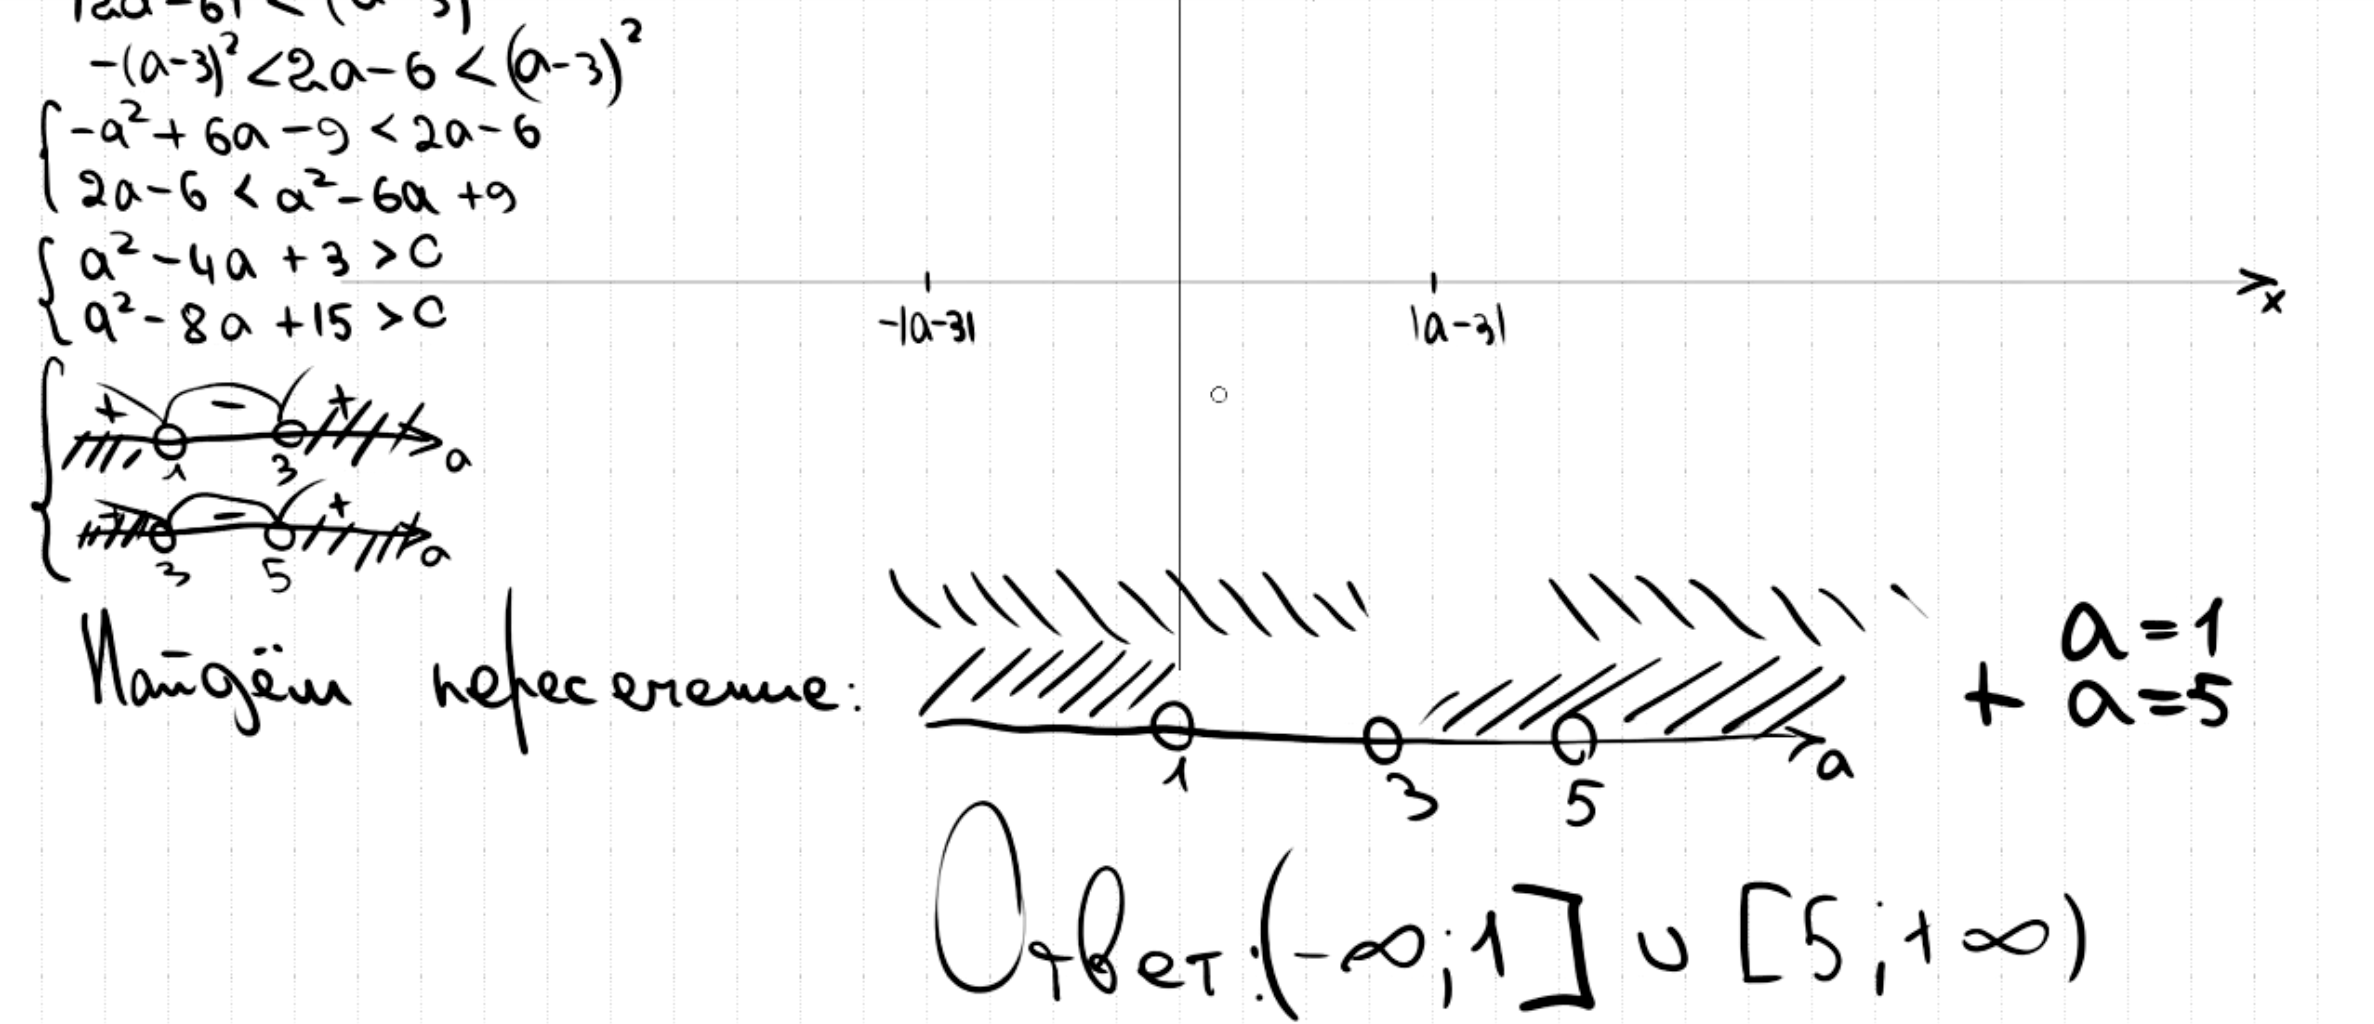 |2a-6| < (a-3)
-(a-3)² < 2a-6 < (a-3)²
{ -a²+6a-9 < 2a-6
2a-6 < a²-6a+9
{ a²-4a+3 > 0
a²-8a+15 > 0
-|a-3| |a-3| x
{ + - + a
1 3
+ - + a
3 5
Найдём пересечение:
1 3 5 a
+ a=1
a=5
Ответ: (-∞; 1] ∪ [5; +∞)